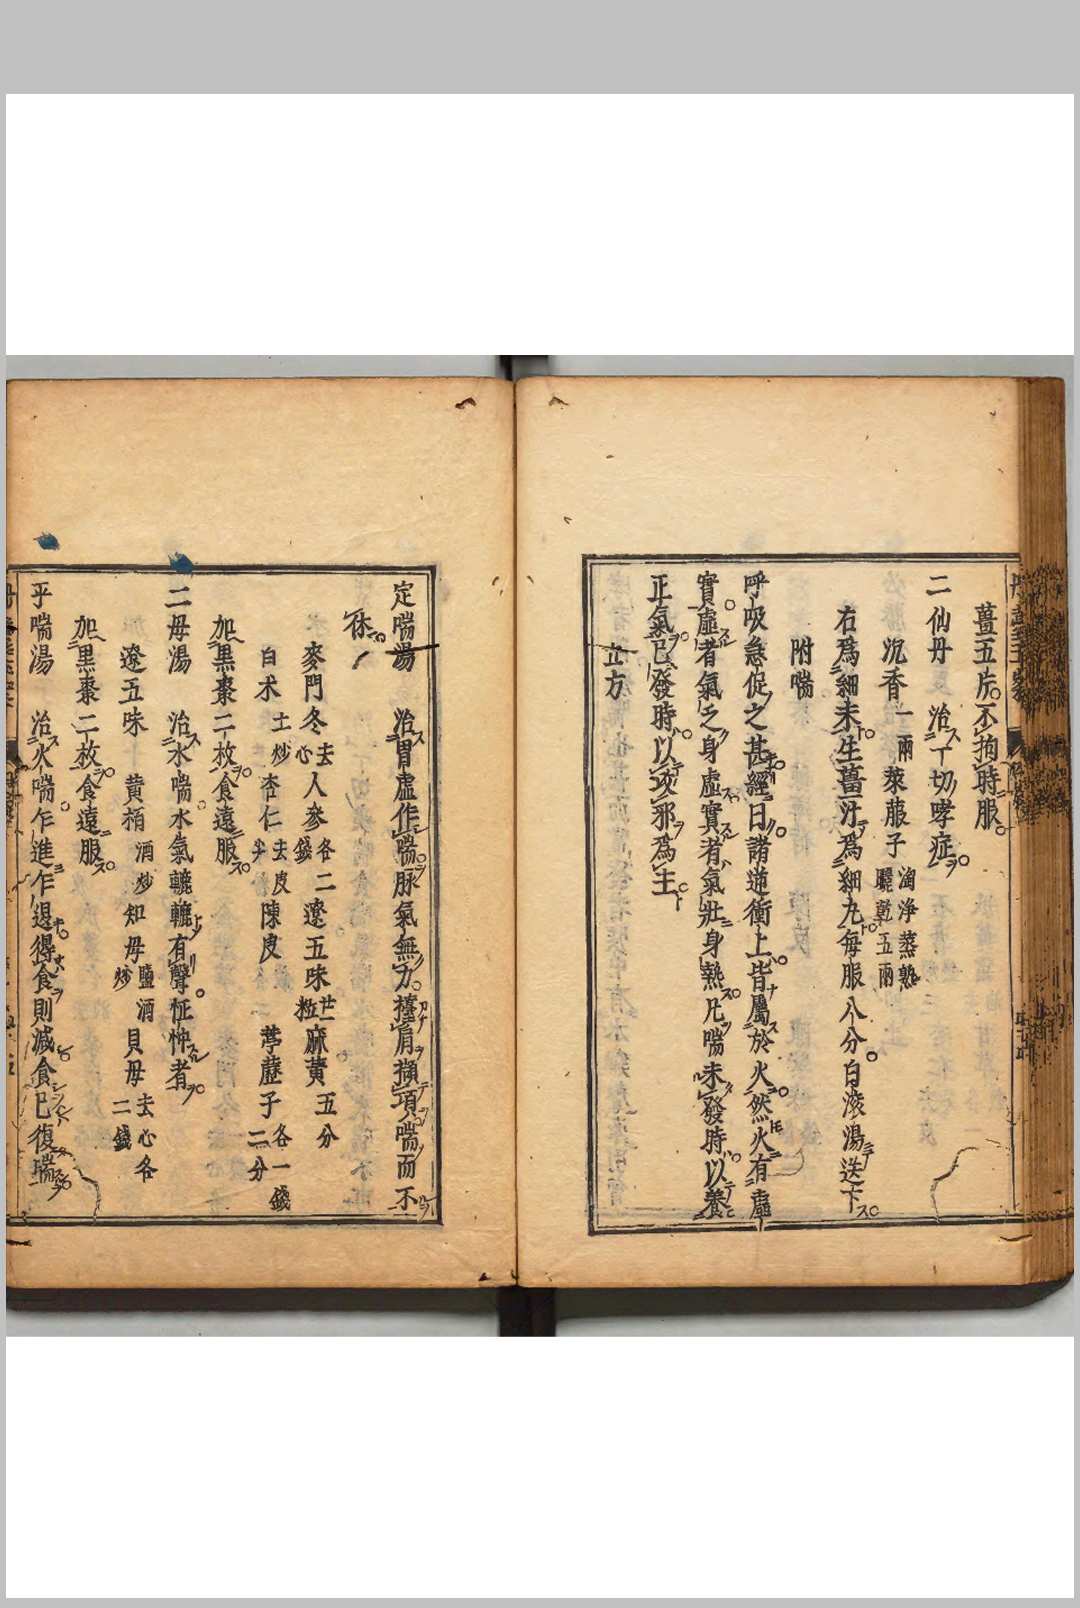 薑五片不拘時服
二仙丹　治一切哮症
沉香一兩萊菔子淘淨蒸熟曬乾五兩
右爲細末生薑汁爲細丸每服八分白滚湯送下
附喘
呼吸急促之甚經曰諸逆衝上皆屬於火然火有虛
實虛者氣乏身虛實者氣壯身熱凡喘未發時以養
正氣已發時以攻邪爲主
立方
定喘湯　治胃虛作喘脉氣無力擡肩擷項喘而不
休
麥門冬去心人參各二錢遼五味廿一粒麻黄五分
白朮土炒杏仁去皮尖陳皮葶藶子各一錢二分
加黒棗二枚食遠服
二母湯　治水喘水氣轆轆有聲怔忡者
遼五味　黄栢酒炒知母鹽酒炒貝母去心各二錢
加黒棗二枚食遠服
平喘湯　治火喘乍進乍退得食則减食已復喘